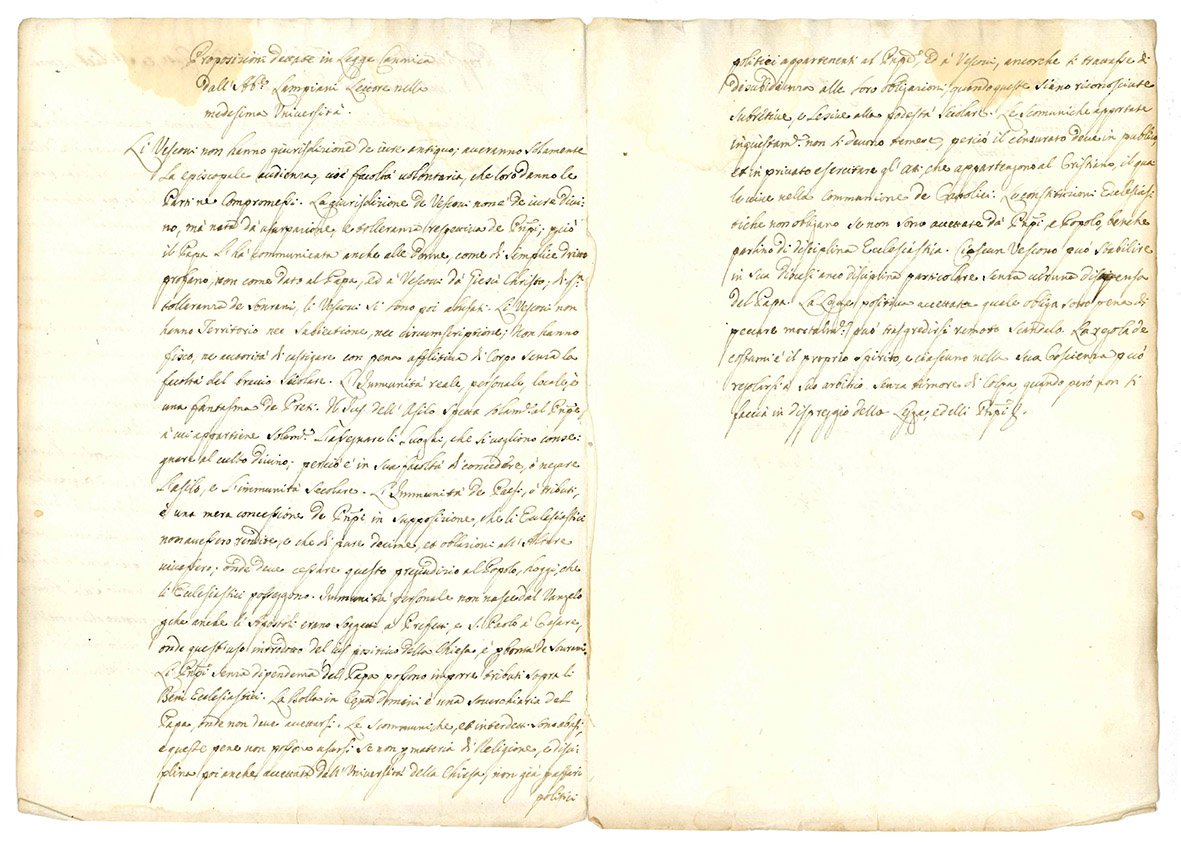 Proposizioni dettate in Legge Canonica
Dall' Ab.e Lampiani Lettore nella
medesima Università.
Li Vescovi non hanno giurisdizione de iure antiquo; averanno solamente
la episcopale audienza, cioè facoltà volontaria, che loro danno le
Parti ne Compromessi. La giurisdizione de Vescovi non è de iure divi-
no, mà nata dà usurpazione, e tolleranza respettiva de Pnpi; però
il Papa l'hà communicata anche alle Donne, come di semplice dritto
profano, non come dato al Papa, ed a Vescovi dà Giesù Christo, di st:
tolleranza de Sovrani, li Vescovi si sono poi abusati. Li Vescovi non
hanno Territorio nec Subiectione, nec circumscriptione; Non hanno
fisco, ne autorità di castigare con pena afflittiva di Corpo senza la
facoltà del braccio secolare. L'Immunità reale, personale, locale, è
una fantasma de Preti. Il Jus dell' Asilo spetta solamte al Pnpe,
à cui appartiene solamte. l'assegnare li Luoghi, che si vogliono conse-
gnare al culto divino; perciò è in sua facoltà di concedere, ò negare
l'asilo, e l'immunità secolare. L'Immunità de Paesi, ò tributi,
è una mera concessione de Pnpi in supposizione, che li Eclesiastici
non avessero rendite, e che di pure decime, et oblazioni all' Altare
vivessero; onde deve cessare questo pregiudizio al Popolo, hoggi, che
li Eclesiastici posseggono. Immunità personale non nasce dal Vangelo
pche anche li Apostoli erano soggetti a Prefetti, e S. Paolo à Cesare,
onde quest' uso introdotto del ius positivo della Chiesa, è p bontà de Sovrani.
Li Pnpi senza dipendenza del Papa possono imporre tributi sopra li
Beni Ecclesiastici. La Bolla in Cena Domini è una soverchiaria del
Papa, onde non deve accettarsi. Le Scommuniche, et interdetti son abusi,
e queste pene non possono usarsi se non p materia di Religione, e disci-
plina poi anche accettata dall' Università della Chiesa, non già p affari
politici
politici appartenenti al Pnpe, ed à Vescovi, ancorche si trattasse di
disubidienza alle loro obligazioni, quando queste siano riconosciute
subrettive, e lesive alla podestà secolare. Le scomuniche apportate
in questa m.a non si devono temere, perciò il censurato deve in publico,
et in privato esercitare gl' atti, che appartengono al Cristiano, il qua-
le vive nella communione de Cattolici. Le constituzioni Ecclesias-
tiche non obligano se non sono accettate dà Pnpi, e Popolo, benche
parlino di disciplina Ecclesiastica. Ciascun Vescovo può stabilire
in sua Diocesi anco disciplina particolare senza veruna dispensa
del Papa. La Legge politica accettata quale obliga sotto pena di
peccare mortalmte. può trasgredirsi remoto scandalo. La regola de
costumi è il proprio spirito, e ciascuno nella sua Coscienza può
regolarsi a suo arbitrio senza timore di Colpa, quando però non si
faccia in dispreggio della Legge, e delli Pnpi.